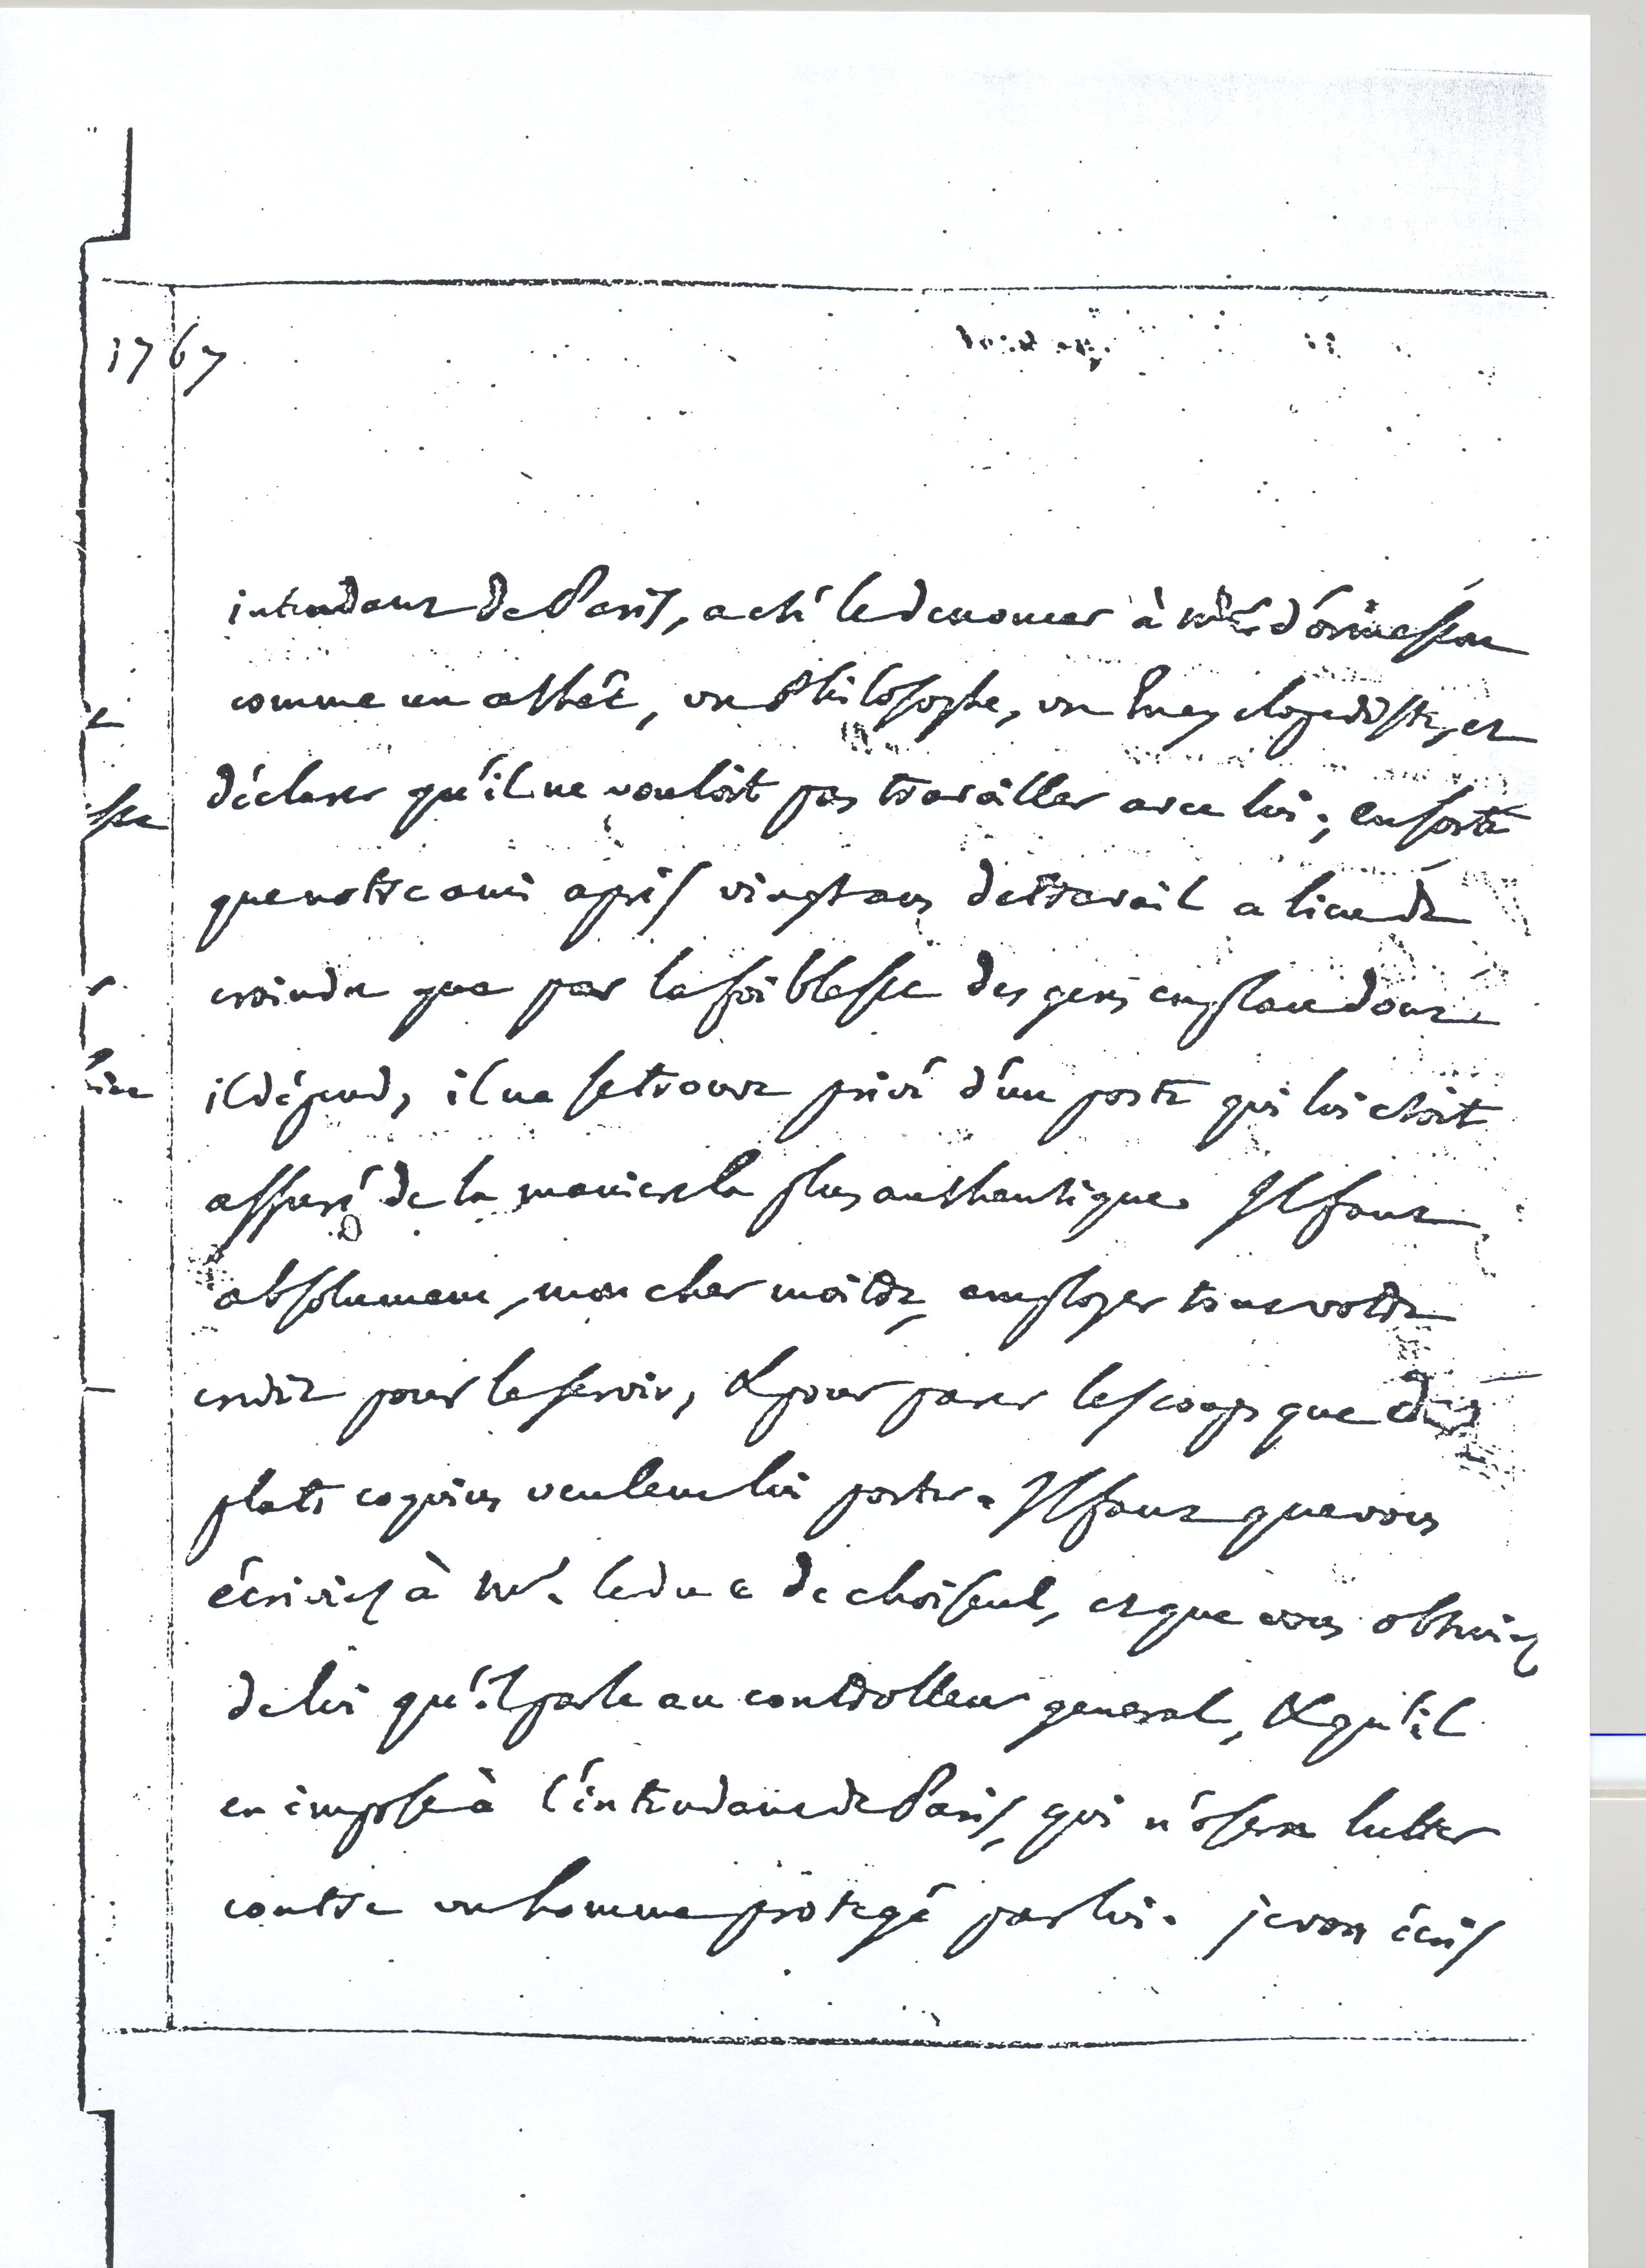 1767
intendant de Paris, a été le denoncer à Mr d'ormesson
comme un athée, un Philosophe, un Encyclopediste, et
déclarer qu'il ne vouloit pas travailler avec lui; ensorte
que notre ami après vingt ans de travail a lieu de
craindre que par la foiblesse des gens en place dont
il dépend, il ne se trouve privé d'un poste qui lui étoit
assuré de la maniere la plus authentique. Il faut
absolument, mon cher maitre, employer tout votre
credit pour le servir, & pour parer les coups que des
plats coquins veulent lui porter. Il faut que vous
écriviez à Mr. le duc de choiseul, et que vous obteniez
de lui qu'il parle au controlleur general, & qu'il
en impose à l'intendant de Paris, qui n'osera lutter
contre un homme protegé par lui. je vous écris